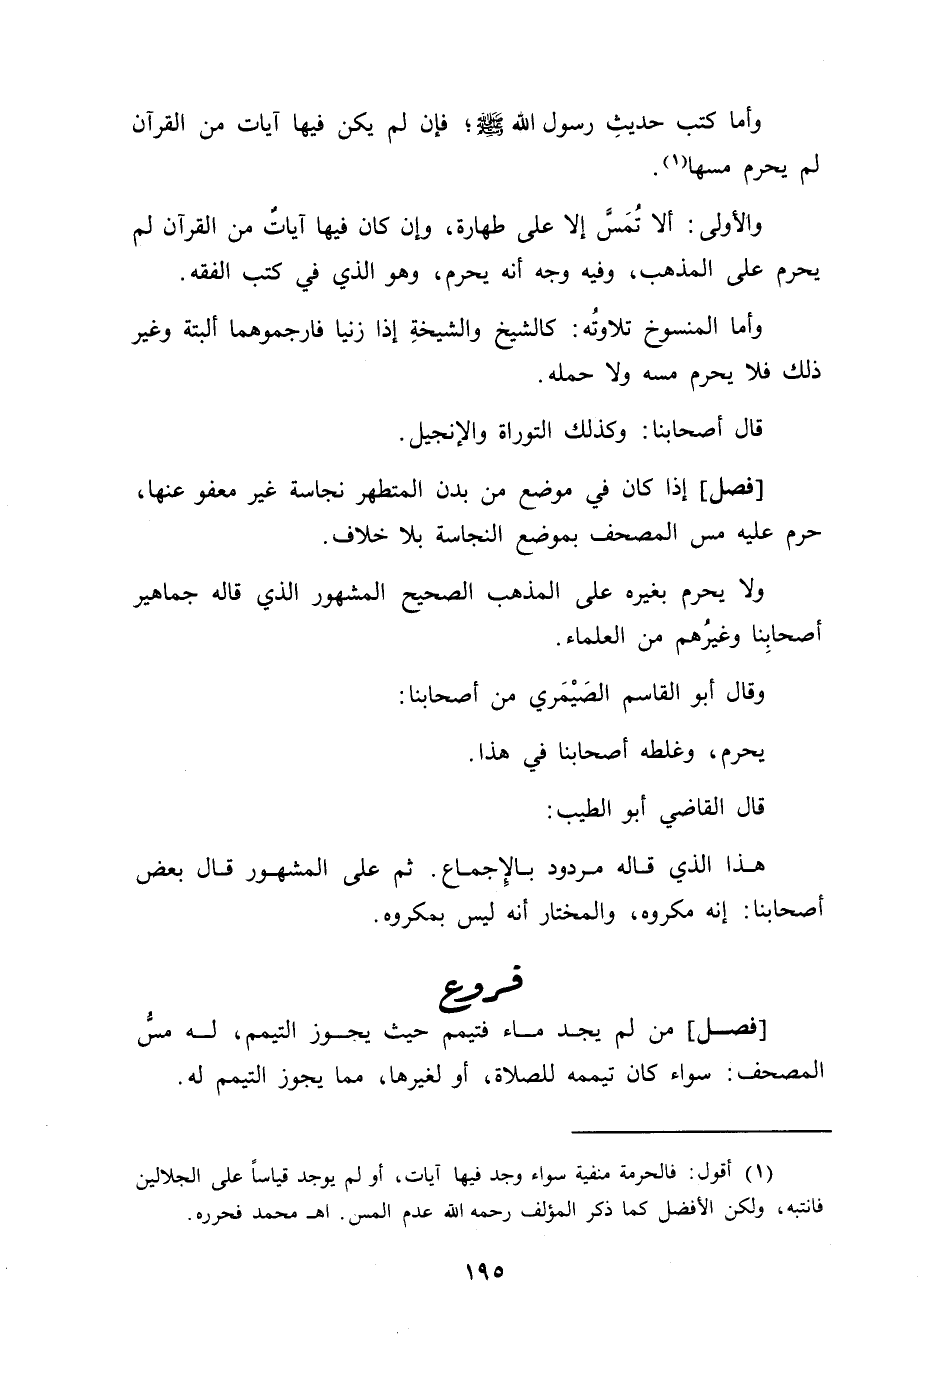 وأما كتب حديثِ رسول الله ﷺ؛ فإن لم يكن فيها آيات من القرآن
لم يحرم مسها(١).
والأولى: ألا تُمَسَّ إلا على طهارة، وإن كان فيها آياتٌ من القرآن لم
يحرم على المذهب، وفيه وجه أنه يحرم، وهو الذي في كتب الفقه.
وأما المنسوخ تلاوتُه: كالشيخ والشيخةِ إذا زنيا فارجموهما ألبتة وغير
ذلك فلا يحرم مسه ولا حمله.
قال أصحابنا: وكذلك التوراة والإنجيل.
[فصل] إذا كان في موضع من بدن المتطهر نجاسة غير معفو عنها،
حرم عليه مس المصحف بموضع النجاسة بلا خلاف.
ولا يحرم بغيره على المذهب الصحيح المشهور الذي قاله جماهير
أصحابِنا وغيرُهم من العلماء.
وقال أبو القاسم الصَيْمَري من أصحابنا:
يحرم، وغلطه أصحابنا في هذا.
قال القاضي أبو الطيب:
هـذا الذي قـاله مـردود بـالإِجمـاع. ثم على المشهـور قـال بعض
أصحابنا: إنه مكروه، والمختار أنه ليس بمكروه.
فروع
[فصـل] من لم يجـد مـاء فتيمم حيث يجـوز التيمم، لـه مسُّ
المصحف: سواء كان تيممه للصلاة، أو لغيرها، مما يجوز التيمم له.
(١) أقول: فالحرمة منفية سواء وجد فيها آيات، أو لم يوجد قياساً على الجلالين
فانتبه، ولكن الأفضل كما ذكر المؤلف رحمه الله عدم المس. اهـ محمد فحرره.
١٩٥